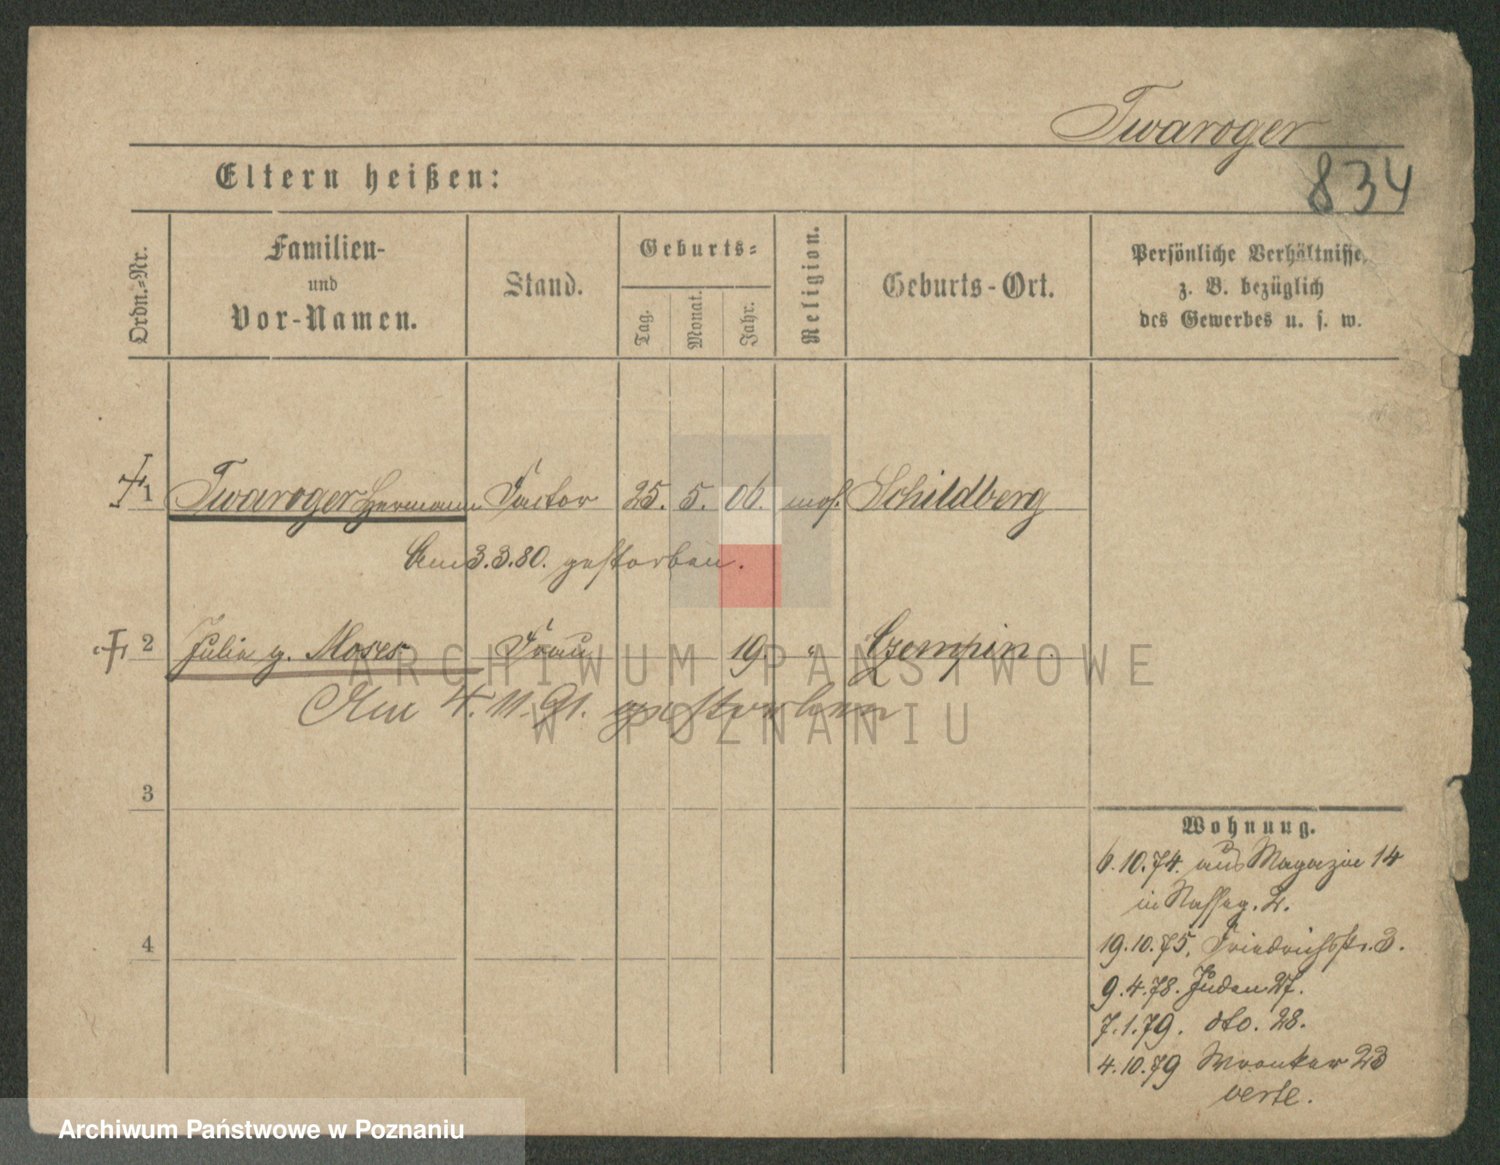 Twaroger
834
Eltern heißen:
Ordn.-Nr.
Familien-
und
Vor-Namen.
Stand.
Geburts-
Tag.
Monat.
Jahr.
Religion.
Geburts-Ort.
Persönliche Verhältnisse,
z. B. bezüglich
des Gewerbes u. s. w.
1 Twaroger Hermann Factor 25. 5. 06. mos. Schildberg
Am 3.3.80. gestorben.
2 Julie g. Moses Frau 19 " Czempin
Am 4.11.91. gestorben
3
4
Wohnung.
6.10.74. aus Magazin 14
in Nasseg. 2.
19.10.75. Friedrichstr. 3.
9.4.78. Juden 27.
7.1.79. dto. 28.
4.10.79 Wronker 23
verte.
ARCHIWUM PAŃSTWOWE
W POZNANIU
Archiwum Państwowe w Poznaniu